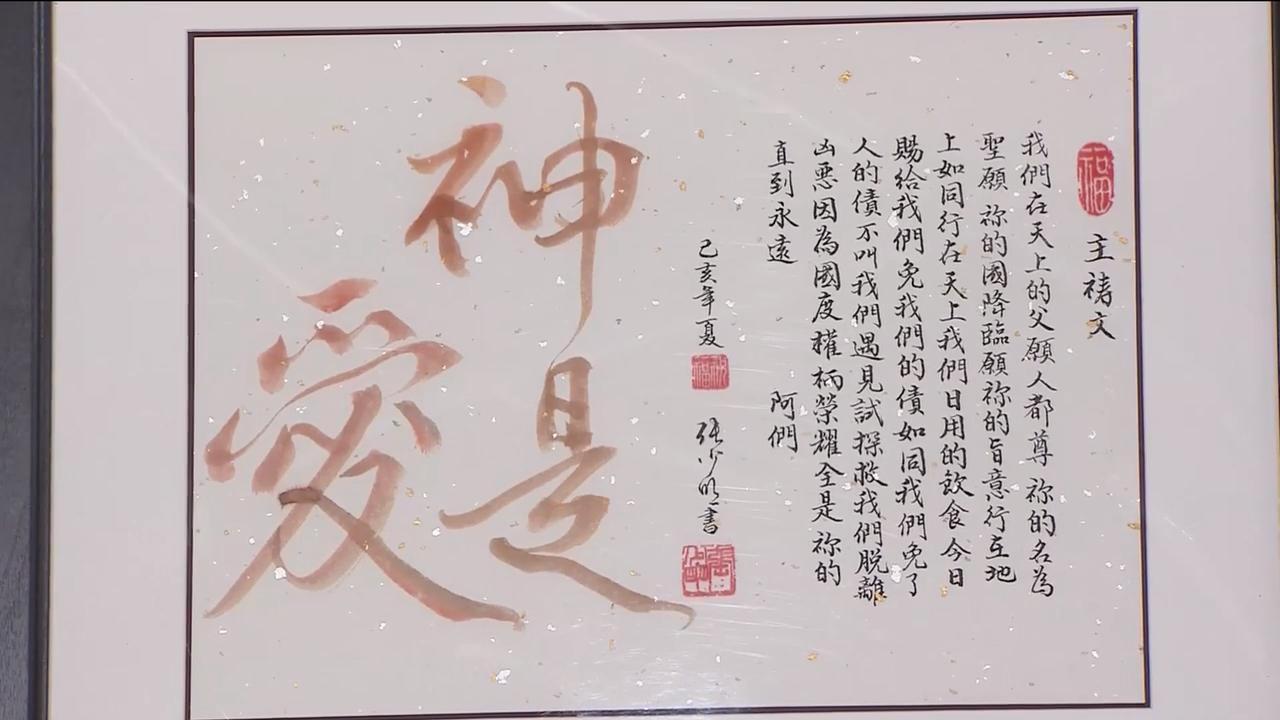 福
主禱文
我們在天上的父願人都尊祢的名為
聖願祢的國降臨願祢的旨意行在地
上如同行在天上我們日用的飲食今日
賜給我們免我們的債如同我們免了
人的債不叫我們遇見試探救我們脫離
凶惡因為國度權柄榮耀全是祢的
直到永遠 阿們
己亥年夏
書
神是
愛